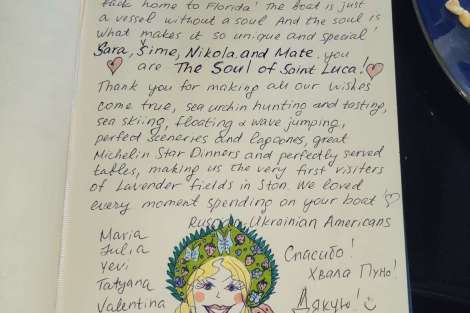 back home to Florida! The boat is just
a vessel without a soul And the soul is
what makes it so unique and special
Sara, Šime, Nikola and Mate, you
are The Soul of Saint Luca!
Thank you for making all our wishes
come true, sea urchin hunting and tasting,
sea skiing, floating & wave jumping,
perfect sceneries and lagoones, great
Michelin Star Dinners and perfectly served
tables, making us the very first visiters
of Lavender fields in Ston. We loved
every moment spending on your boat!
Ukrainian Americans
Maria
Julia
Yevi
Tatyana
Valentina
Спасибо!
Хвала Пуно!
Дякую!